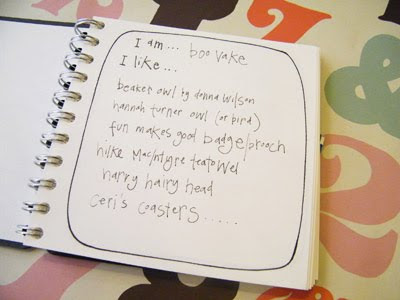 I am... boo vake
I like...
beaker owl by donna wilson
hannah turner owl (or bird)
fun makes good badge/brooch
hilke MacIntyre teatowel
harry hairy head
Ceri's coasters.....